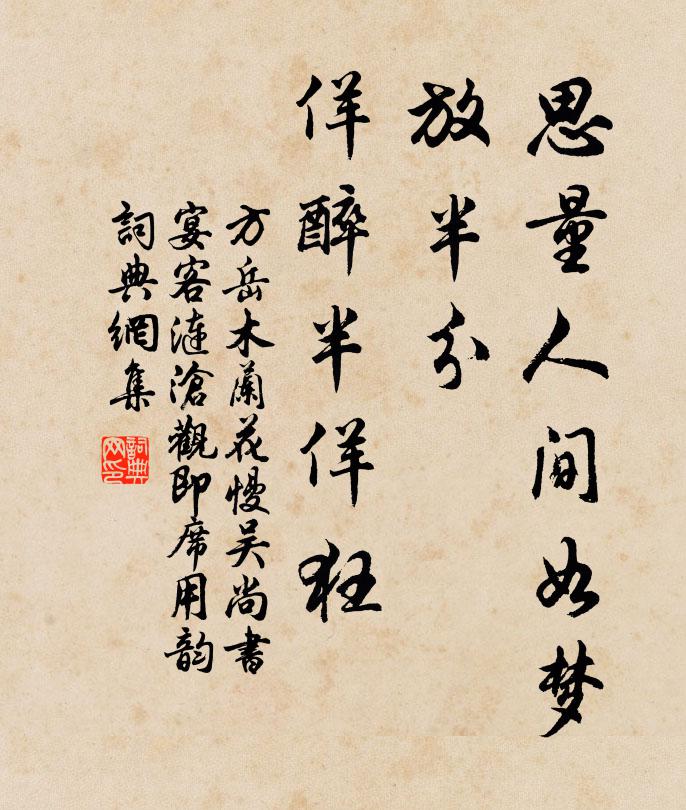 思量人间如梦
放半分
佯醉半佯狂
方岳木蘭花慢吴尚書
宴客漣滄觀即席用韵
詞典網集
詞典网印